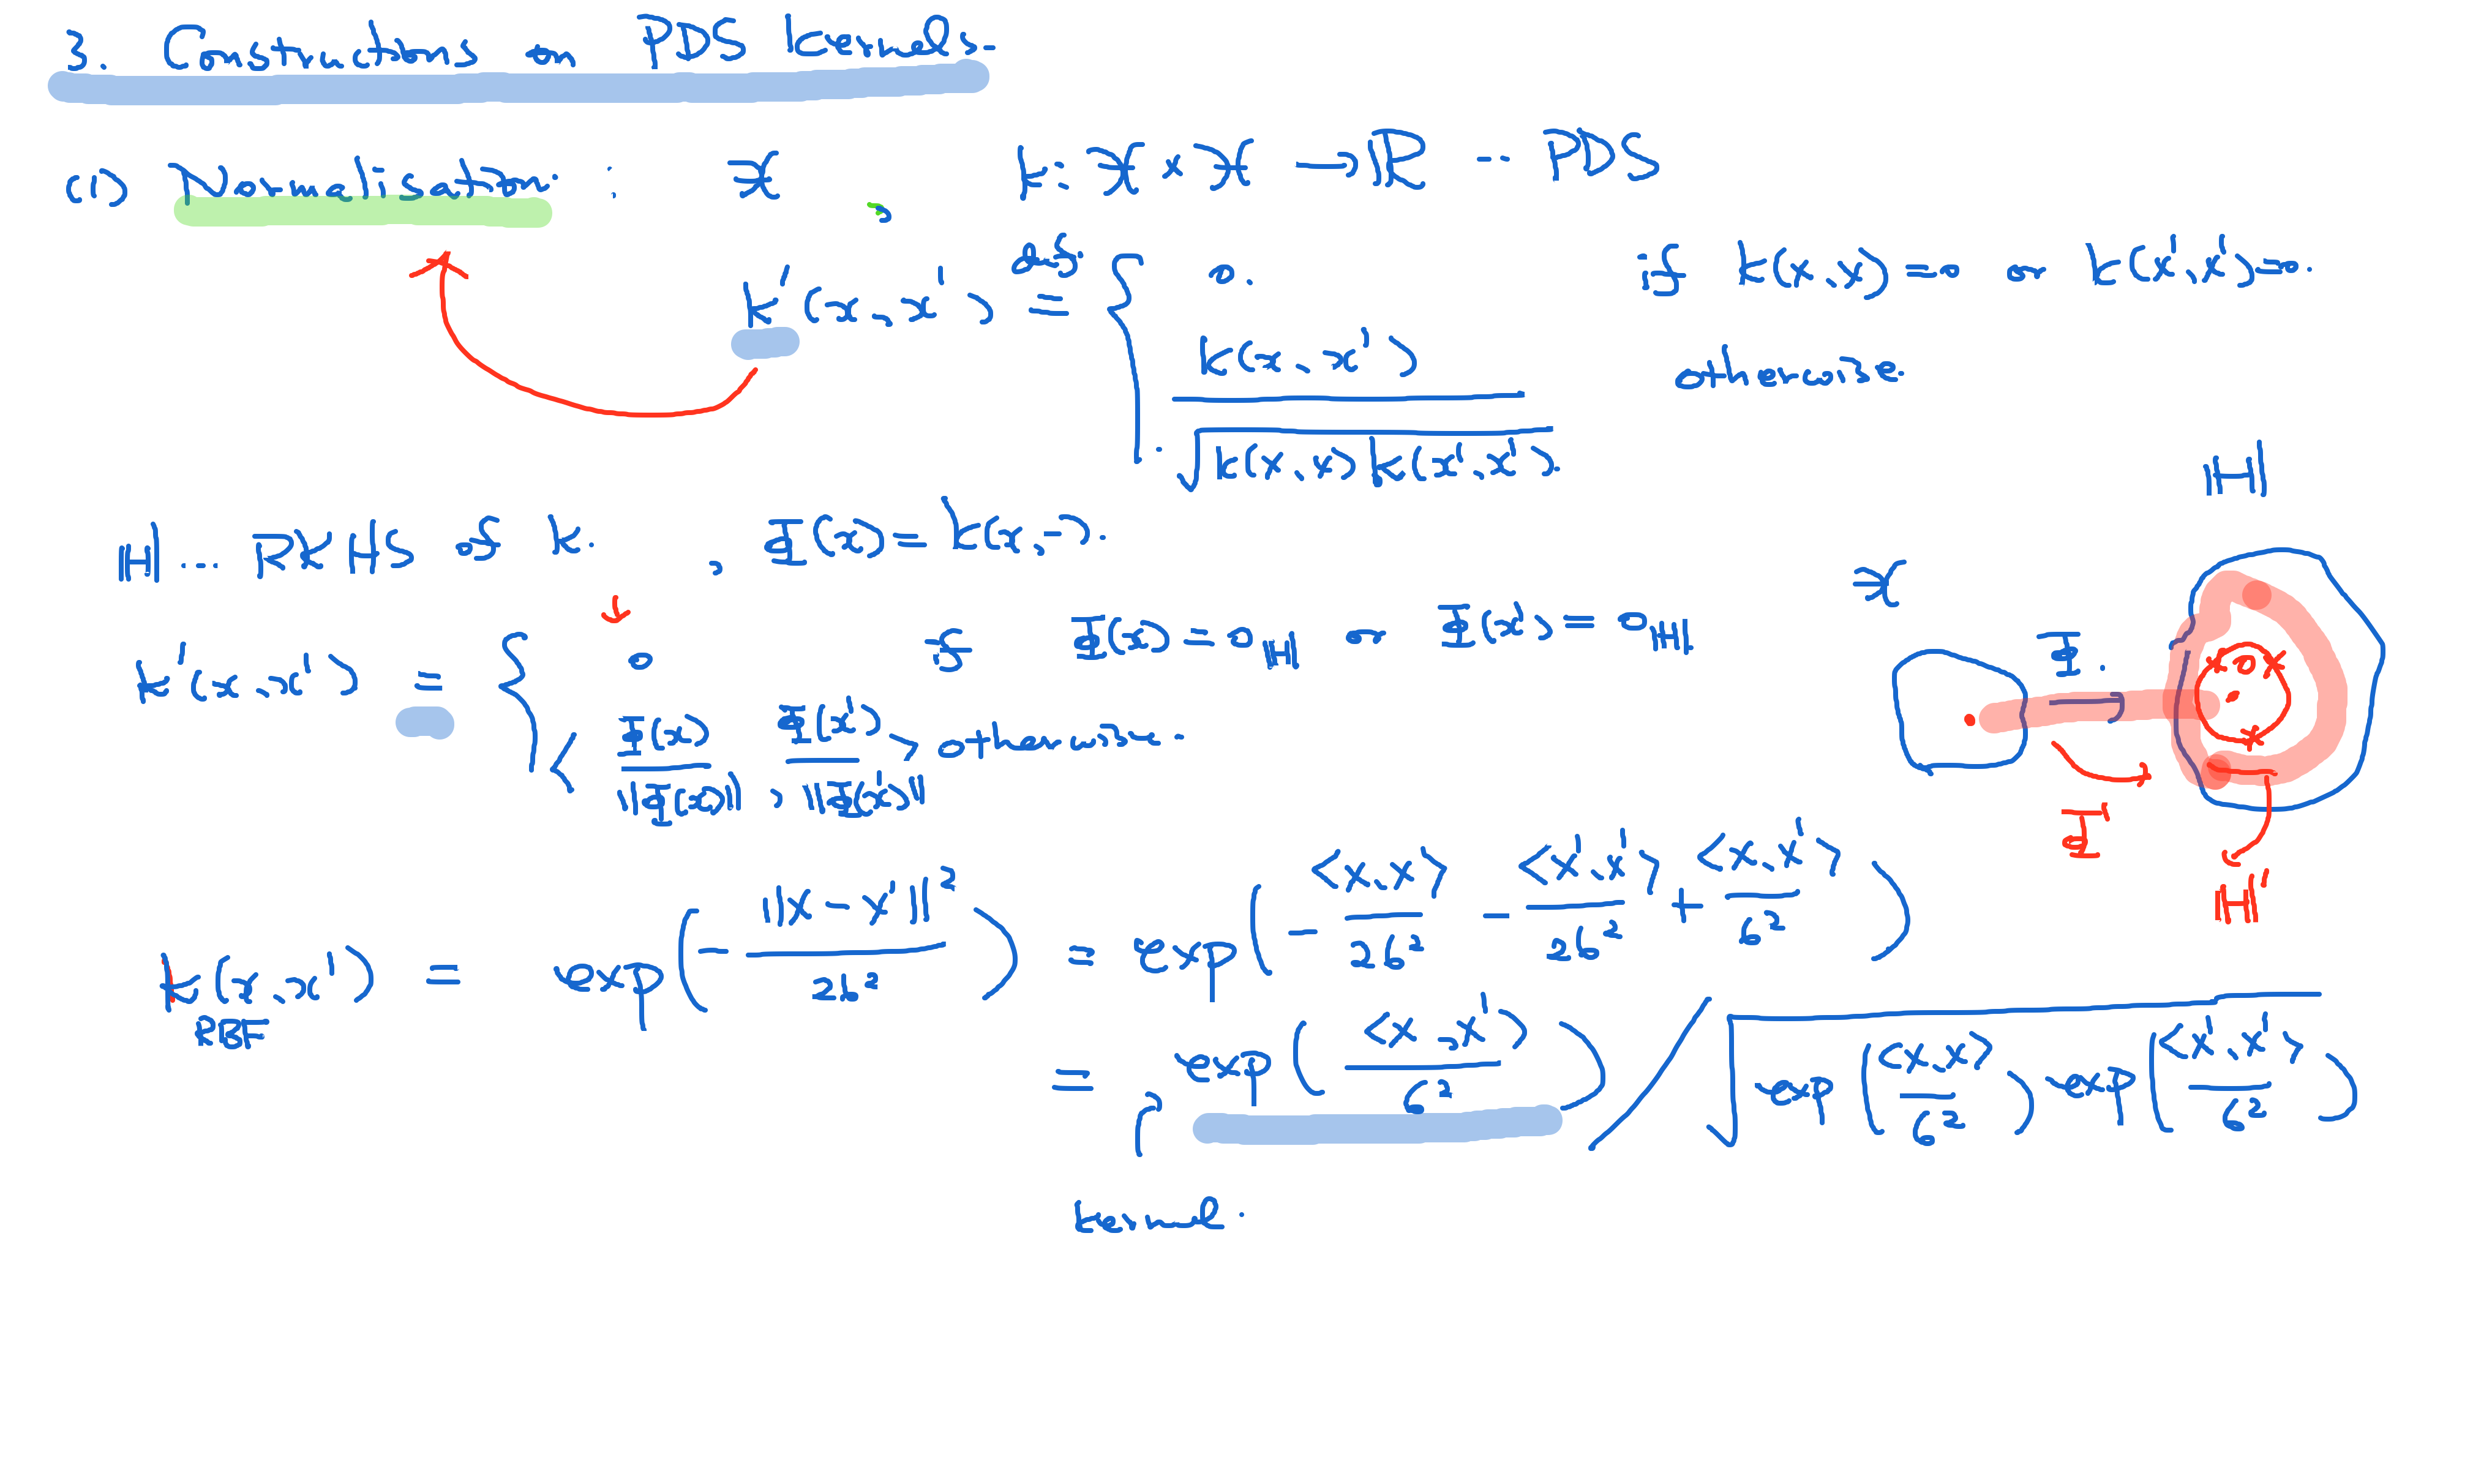 3. Constructions on PDS kernels.
(1) Normalisation : X , k: X x X → R -- PDS
k'(x, x') def= { 0. if k(x,x)=0 or k(x',x')=0.
k(x, x') / √k(x,x) k(x',x'). otherwise.
H
H ... RKHS of k. , Φ(x) = k(x, -).
X
k'(x, x') = { 0 if Φ(x) = 0_H or Φ(x') = 0_H
< Φ(x) / ||Φ(x)|| , Φ(x') / ||Φ(x')|| > otherwise.
Φ.
0
Φ'
H'
k_RBF(x, x') = exp( - ||x - x'||² / 2σ² ) = exp( - <x,x> / 2σ² - <x',x'> / 2σ² + <x,x'> / σ² )
= exp( <x, x'> / σ² ) / √exp( <x,x> / σ² ) exp( <x',x'> / σ² )
kernel.